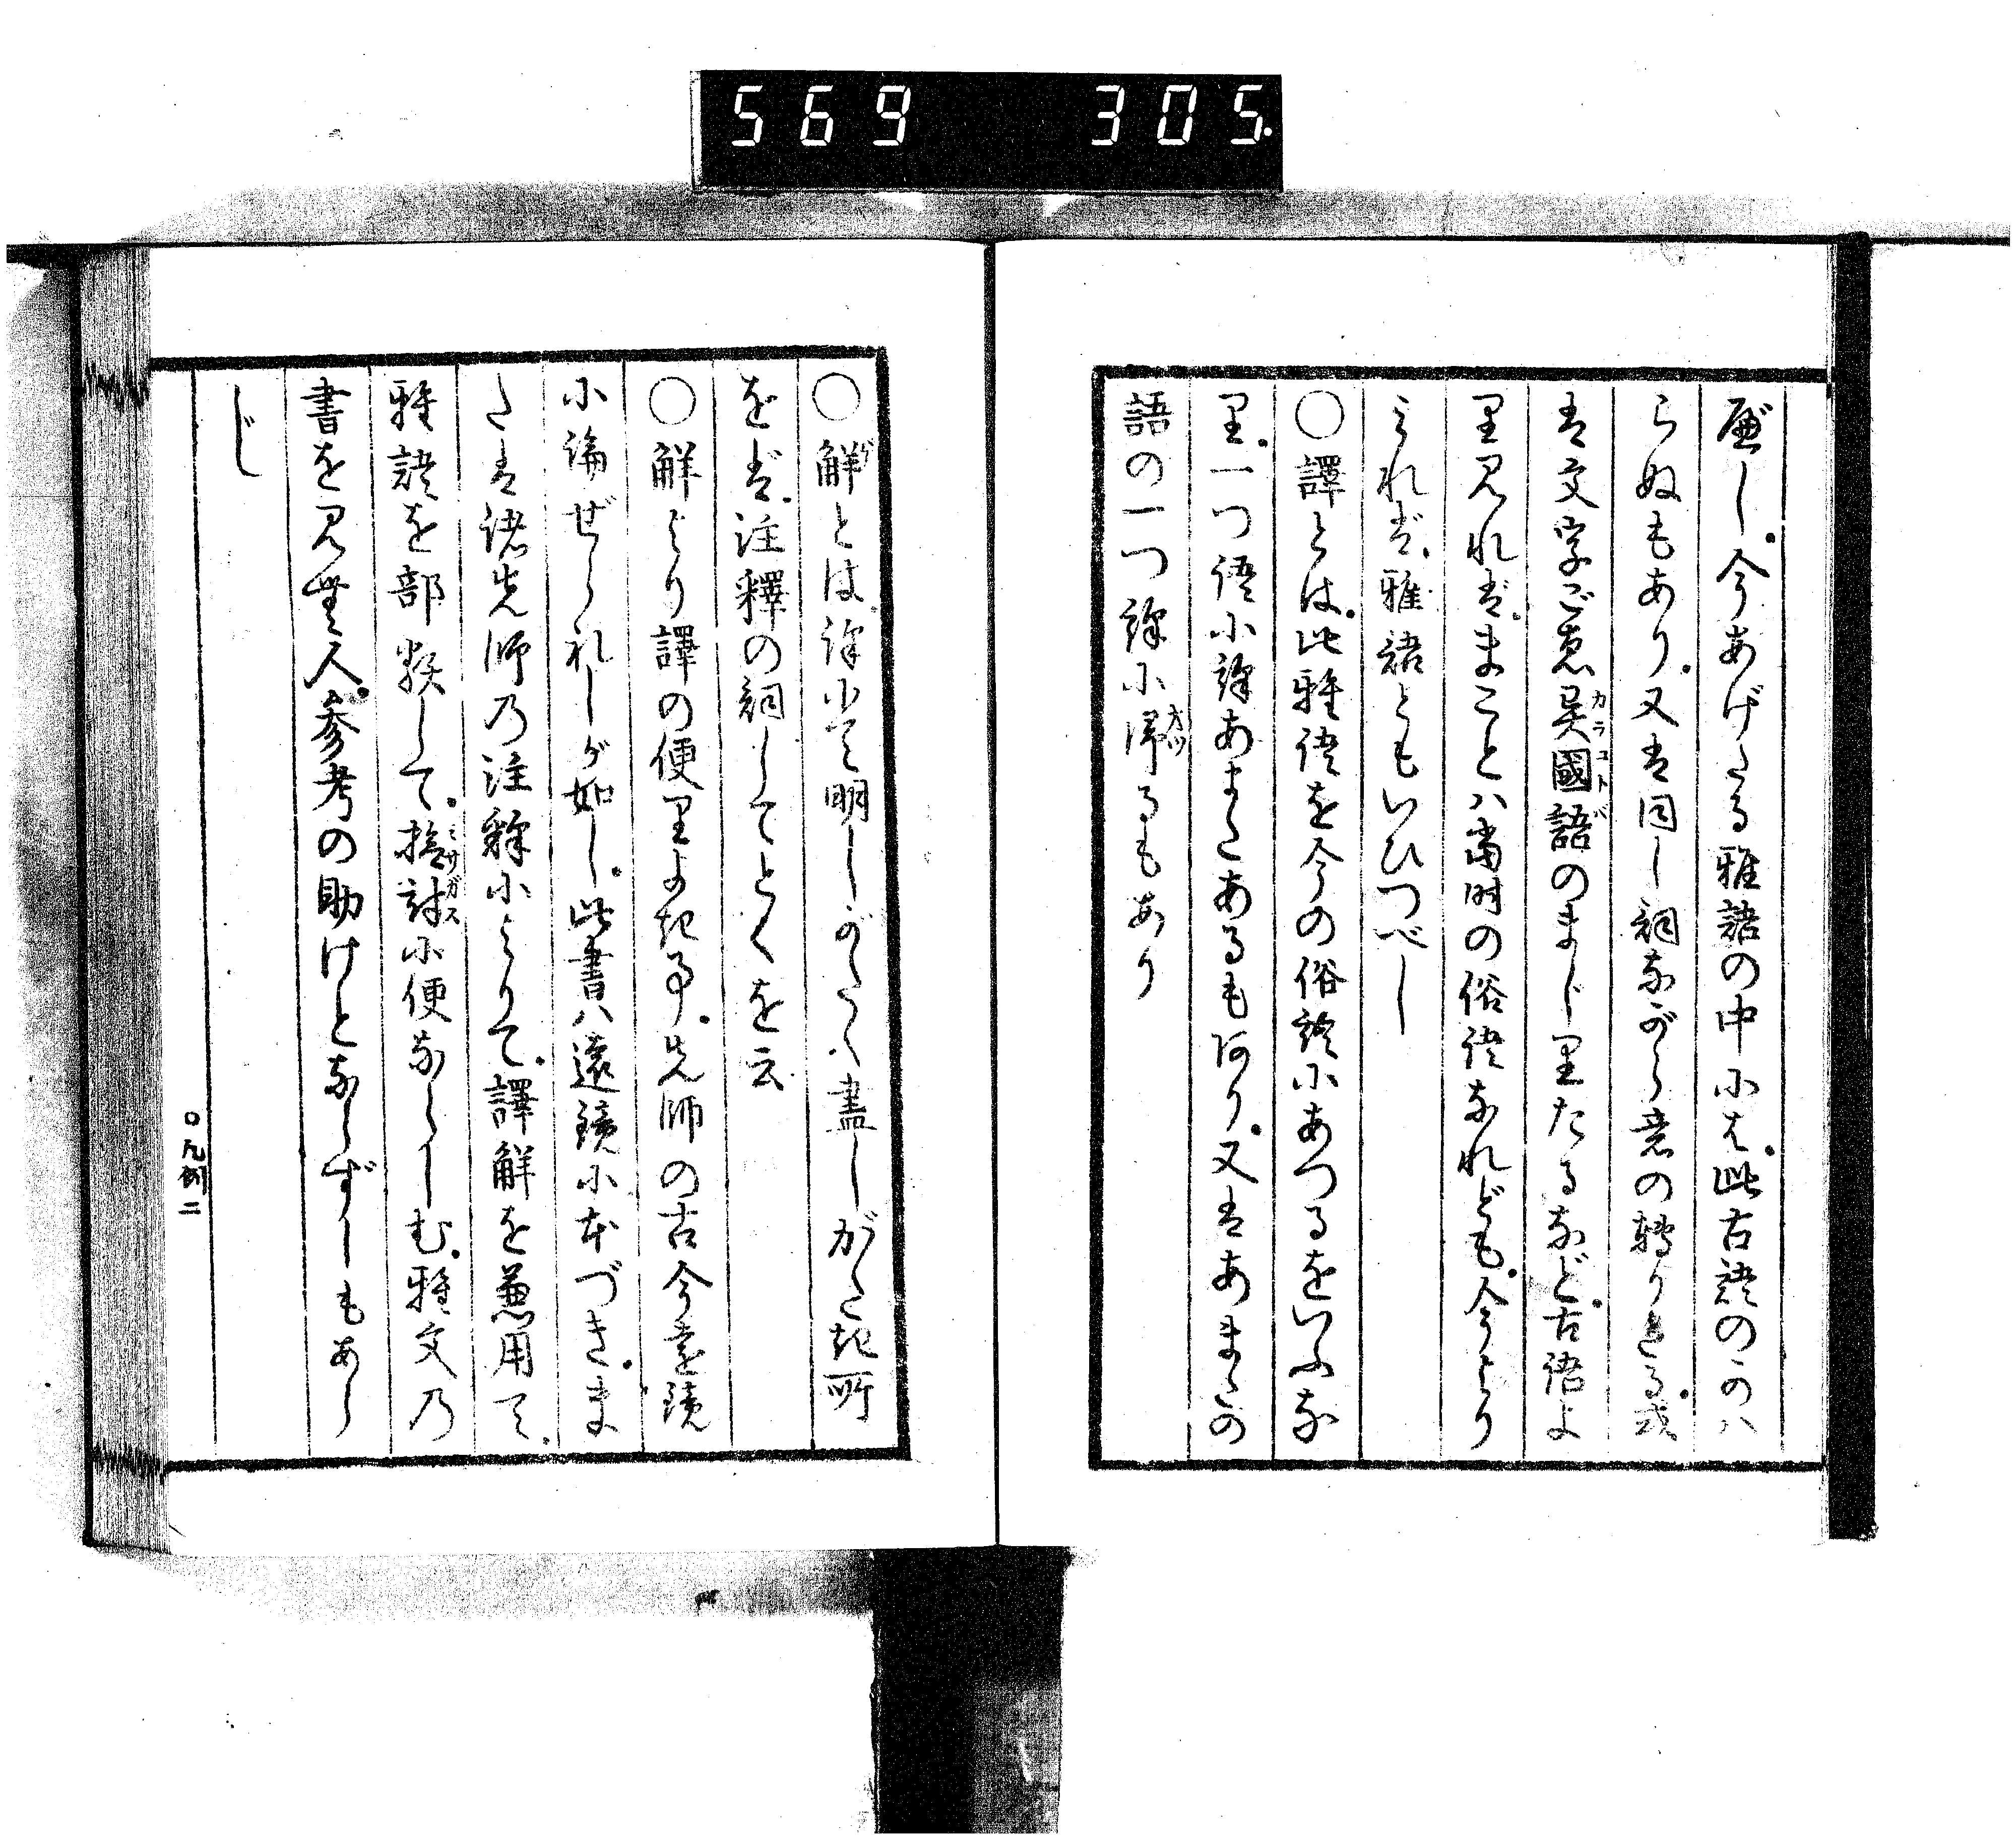 569 305.
べし。今あげたる雅語の中にも。此古語のかハ
らぬもあり。又は同し詞ながら意の轉りきる。或
は文字ごゑ異國語のまじりたるなど。古語よ
り見れば。まことハ當時の俗語なれども。今より
みれば、雅語ともいひつべし
〇譯とは。此雅語を今の俗語にあつるをいふな
り。一つ語に譯あまたあるもあり。又はあまたの
語の一つ譯に帰るもあり
〇解とは。譯にて明しがたく盡しがたき所
をば。注釋の詞してとくを云
〇解より譯の便りよき事。先師の古今遠鏡
に論ぜられしが如し。此書ハ遠鏡に本づき。ま
たは諸先師の注釋によりて。譯解を兼用て。
雅語を部類して。捜討に便ならしむ。雅文の
書を見む人。参考の助けとならずしもあら
じ
〇凡例二
カラコトバ
オツ
ゲ
ミサガス